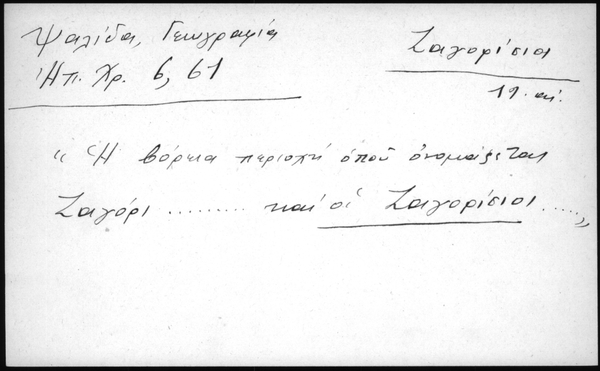 Ψαλίδα, Γεωγραφία
Ἠπ. Χρ. 6, 61
Ζαγορίσιοι
19. αἰ.
" Ἡ βόρεια περιοχή ὁποῦ ὀνομάζεται
Ζαγόρι ......... καί οἱ Ζαγορίσιοι ...."